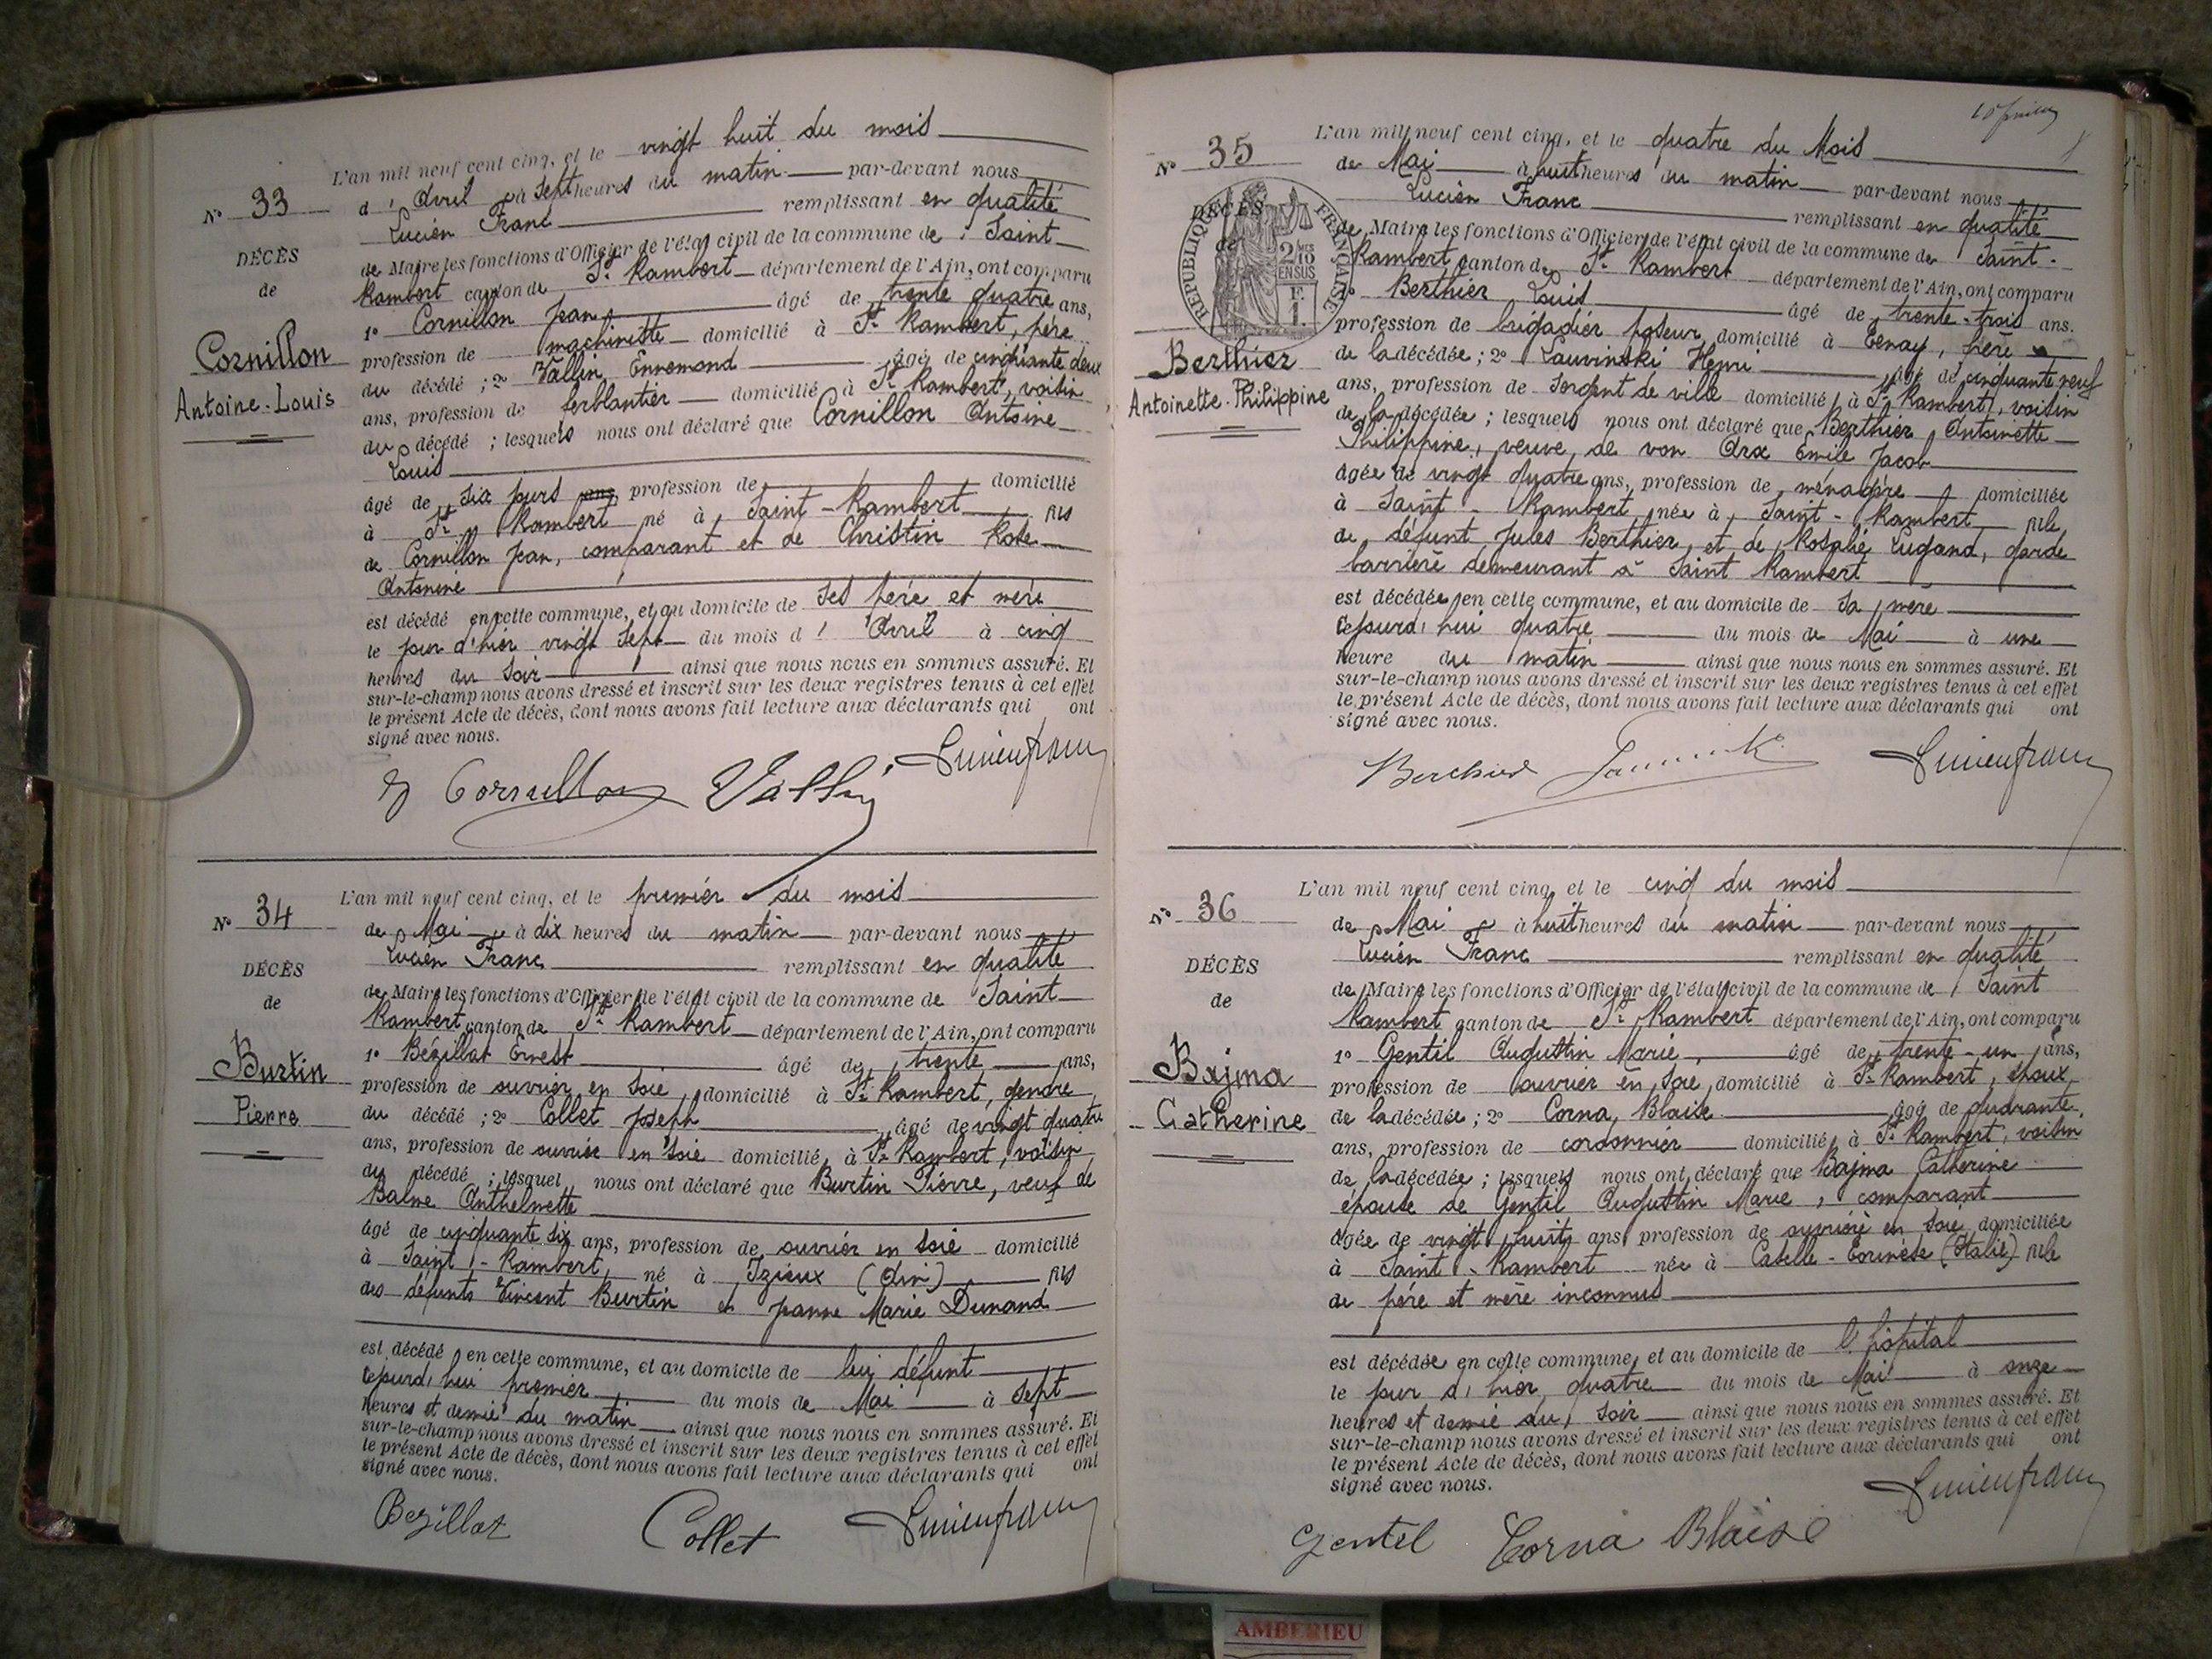 N° 33
DÉCÈS
de
Cornillon
Antoine-Louis
L'an mil neuf cent cinq, et le vingt huit du mois
d' Avril à sept heures du matin par-devant nous
Lucien Franc remplissant en qualité
de Maire les fonctions d'Officier de l'état civil de la commune de Saint
Rambert canton de St Rambert département de l'Ain, ont comparu
1° Cornillon Jean âgé de trente quatre ans,
profession de machiniste domicilié à St Rambert, père
du décédé ; 2° Vallin Ennemond âgé de cinquante deux
ans, profession de ferblantier domicilié à St Rambert, voisin
du décédé ; lesquels nous ont déclaré que Cornillon Antoine
Louis
âgé de six jours ans, profession de domicilié
à St Rambert né à Saint-Rambert fils
de Cornillon Jean, comparant et de Christin Rose
Antonine
est décédé en cette commune, et au domicile de ses père et mère
le jour d'hier vingt sept du mois d' Avril à cinq
heures du soir ainsi que nous nous en sommes assuré. Et
sur-le-champ nous avons dressé et inscrit sur les deux registres tenus à cet effet
le présent Acte de décès, dont nous avons fait lecture aux déclarants qui ont
signé avec nous.
Cornillon Vallin Lucien franc
N° 34
DÉCÈS
de
Burtin
Pierre
L'an mil neuf cent cinq, et le premier du mois
de Mai à dix heures du matin par-devant nous
Lucien Franc remplissant en qualité
de Maire les fonctions d'Officier de l'état civil de la commune de Saint
Rambert canton de St Rambert département de l'Ain, ont comparu
1° Bézillat Ernest âgé de trente ans,
profession de ouvrier en soie domicilié à St Rambert, gendre
du décédé ; 2° Collet Joseph âgé de vingt quatre
ans, profession de ouvrier en soie domicilié à St Rambert, voisin
du décédé ; lesquel nous ont déclaré que Burtin Pierre, veuf de
Balme Anthelmette
âgé de cinquante six ans, profession de ouvrier en soie domicilié
à Saint-Rambert, né à Izieux (Ain) fils
des défunts Vincent Burtin et Jeanne Marie Dunand
est décédé en cette commune, et au domicile de lui défunt
cejourd'hui premier du mois de Mai à sept
heures et demie du matin ainsi que nous nous en sommes assuré. Et
sur-le-champ nous avons dressé et inscrit sur les deux registres tenus à cet effet
le présent Acte de décès, dont nous avons fait lecture aux déclarants qui ont
signé avec nous.
Bezillat Collet Lucien franc
N° 35
DÉCÈS
de
RÉPUBLIQUE FRANÇAISE
2/10
EN SUS
1 F.
Berthier
Antoinette-Philippine
L'an mil neuf cent cinq, et le quatre du Mois
de Mai à huit heures du matin par-devant nous
Lucien Franc remplissant en qualité
de Maire les fonctions d'Officier de l'état civil de la commune de Saint-
Rambert canton de St Rambert département de l'Ain, ont comparu
1° Berthier Louis âgé de trente-trois ans.
profession de brigadier poseur domicilié à Tenay, frère
de la décédée ; 2° Lauvinski Henri âgé de cinquante neuf
ans, profession de sergent de ville domicilié à St Rambert, voisin
de la décédée ; lesquels nous ont déclaré que Berthier Antoinette
Philippine, veuve de von Arx Emile Jacob
âgée de vingt quatre ans, profession de ménagère domiciliée
à Saint-Rambert née à Saint-Rambert fille
de défunt Jules Berthier et de Rosalie Lugand, garde
barrière demeurant à Saint Rambert
est décédée en cette commune, et au domicile de sa mère
cejourd'hui quatre du mois de Mai à une
heure du matin ainsi que nous nous en sommes assuré. Et
sur-le-champ nous avons dressé et inscrit sur les deux registres tenus à cet effet
le présent Acte de décès, dont nous avons fait lecture aux déclarants qui ont
signé avec nous.
Berthier Lucien franc
N° 36
DÉCÈS
de
Bajma
Catherine
L'an mil neuf cent cinq, et le cinq du mois
de Mai à huit heures du matin par-devant nous
Lucien Franc remplissant en qualité
de Maire les fonctions d'Officier de l'état civil de la commune de Saint
Rambert canton de St Rambert département de l'Ain, ont comparu
1° Gentil Augustin Marie, âgé de trente-un ans,
profession de ouvrier en soie domicilié à St Rambert, époux
de la décédée ; 2° Corna Blaise âgé de quarante
ans, profession de cordonnier domicilié à St Rambert, voisin
de la décédée ; lesquels nous ont déclaré que Bajma Catherine
épouse de Gentil Augustin Marie, comparant
âgée de vingt huit ans profession de ouvrière en soie domiciliée
à Saint-Rambert née à Caselle-Torinese (Italie) fille
de père et mère inconnus
est décédée en cette commune, et au domicile de l'hôpital
le jour d'hier quatre du mois de Mai à onze
heures et demie du soir ainsi que nous nous en sommes assuré. Et
sur-le-champ nous avons dressé et inscrit sur les deux registres tenus à cet effet
le présent Acte de décès, dont nous avons fait lecture aux déclarants qui ont
signé avec nous.
Gentil Corna Blaise Lucien franc
AMBERIEU